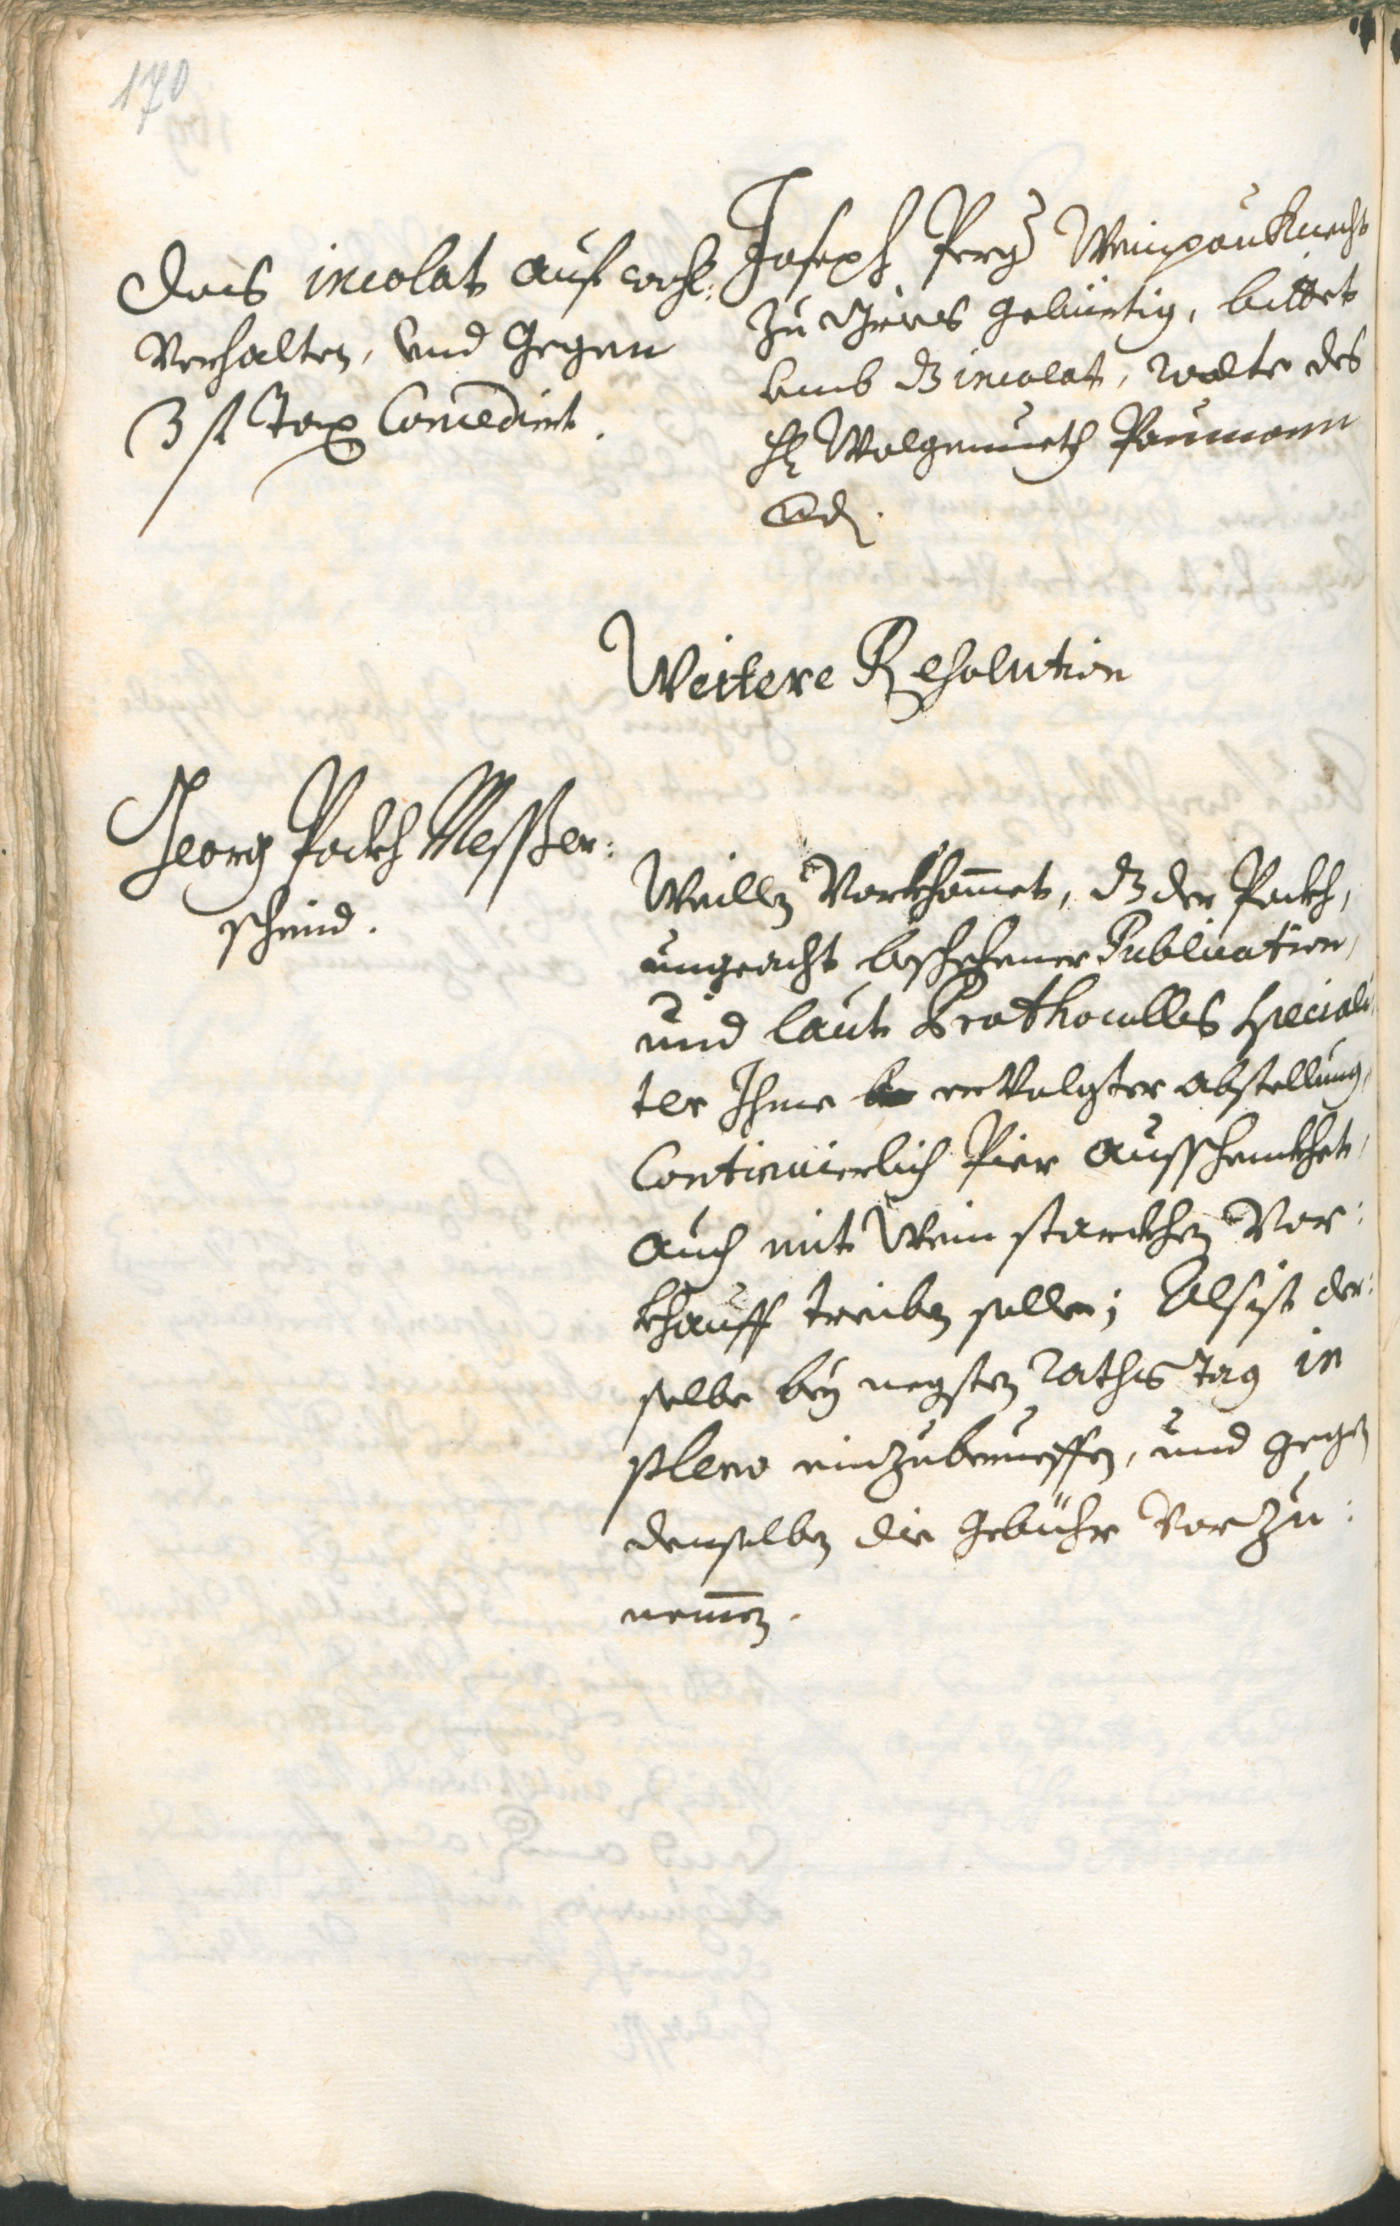 170
Das incolat auf wohl:
Verhalten, und gegen
3 fl Tax Concedirt.
Joseph Perg Weinpauknecht
zu gebürtig, bittet
umb dz incolat, wolte des
H: Wolgemueth Paumann
Weitere Resolution
Georg Pockh Messer:
schmid.
Weillen Vorkhommet, dz der Pockh,
ungeacht beschehener Publication,
und laut Prothocolles speciali:
ter Ihme ervolgter abstellung,
Continuierlich Pier ausschenkhet,
auch mit Wein starckhen Vor:
khauff treiben solle; Als ist der:
selbe bey negsten Raths Tag in
pleno einzuberueffen, und gegen
denselben die gebühr Vorzu:
nemmen.